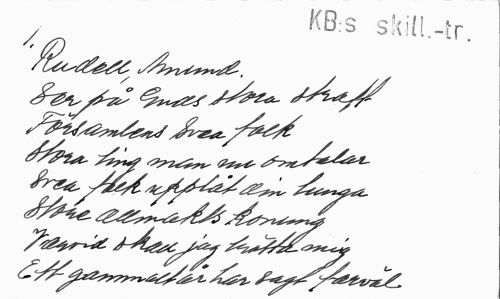 KB:s skill.-tr.
1.
Rudell, Amund.
Ser på Guds stora straff
Församlens Svea folk
Stora ting man nu omtalar
Svea folk upplåt din tunga
Store allmakts konung
Varvid skall jag trötta mig
Ett gammalt år har sagt farväl